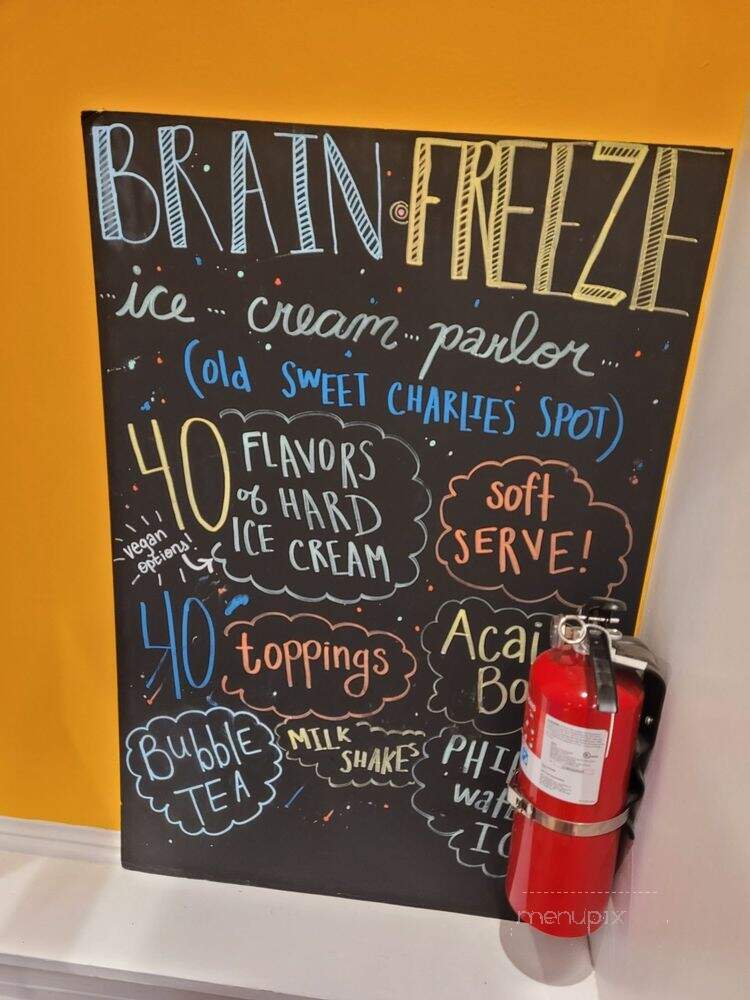 BRAIN FREEZE
ice cream parlor
(old SWEET CHARLIES SPOT)
40
FLAVORS
of HARD
ICE CREAM
vegan
options!
soft
SERVE!
40
toppings
Acai
Bubble
TEA
MILK
SHAKES
menupix